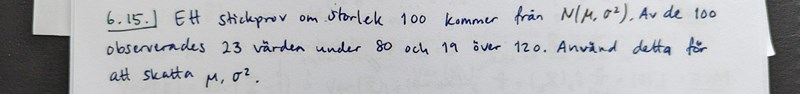 6.15.) Ett stickprov om storlek 100 kommer från N(μ, σ²). Av de 100
observerades 23 värden under 80 och 19 över 120. Använd detta för
att skatta μ, σ².